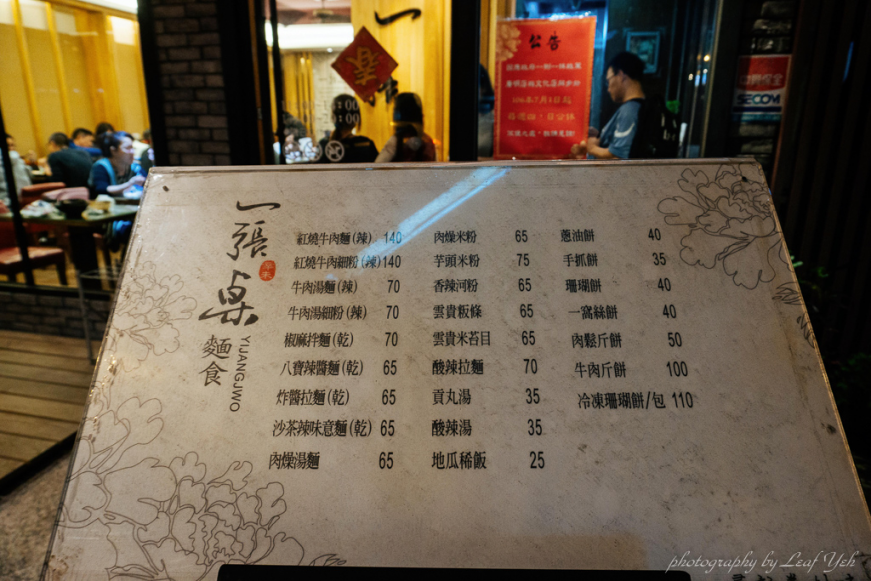 公告
中興保全
SECOM
春
一張桌
麵食
YIJANGJWO
紅燒牛肉麵(辣) 140
紅燒牛肉細粉(辣) 140
牛肉湯麵(辣) 70
牛肉湯細粉(辣) 70
椒麻拌麵(乾) 70
八寶辣醬麵(乾) 65
炸醬拉麵(乾) 65
沙茶辣味意麵(乾) 65
肉燥湯麵 65
肉燥米粉 65
芋頭米粉 75
香辣河粉 65
雲貴粄條 65
雲貴米苔目 65
酸辣拉麵 70
貢丸湯 35
酸辣湯 35
地瓜稀飯 25
蔥油餅 40
手抓餅 35
珊瑚餅 40
一窩絲餅 40
肉鬆斤餅 50
牛肉斤餅 100
冷凍珊瑚餅/包 110
photography by Leaf Yeh